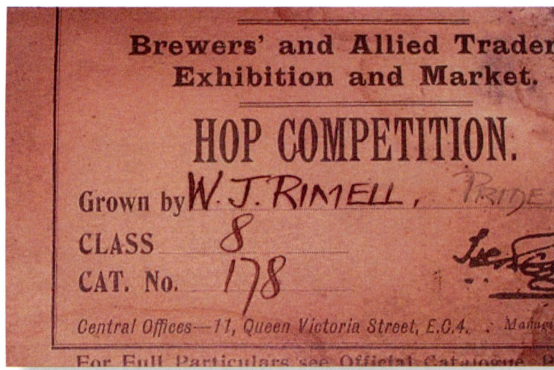 Brewers' and Allied Trader
Exhibition and Market.
HOP COMPETITION.
Grown by W. J. RIMELL, PRIDE
CLASS 8
CAT. No. 178
Central Offices—11, Queen Victoria Street, E.C.4. Manag
For Full Particulars see Official Catalogue.